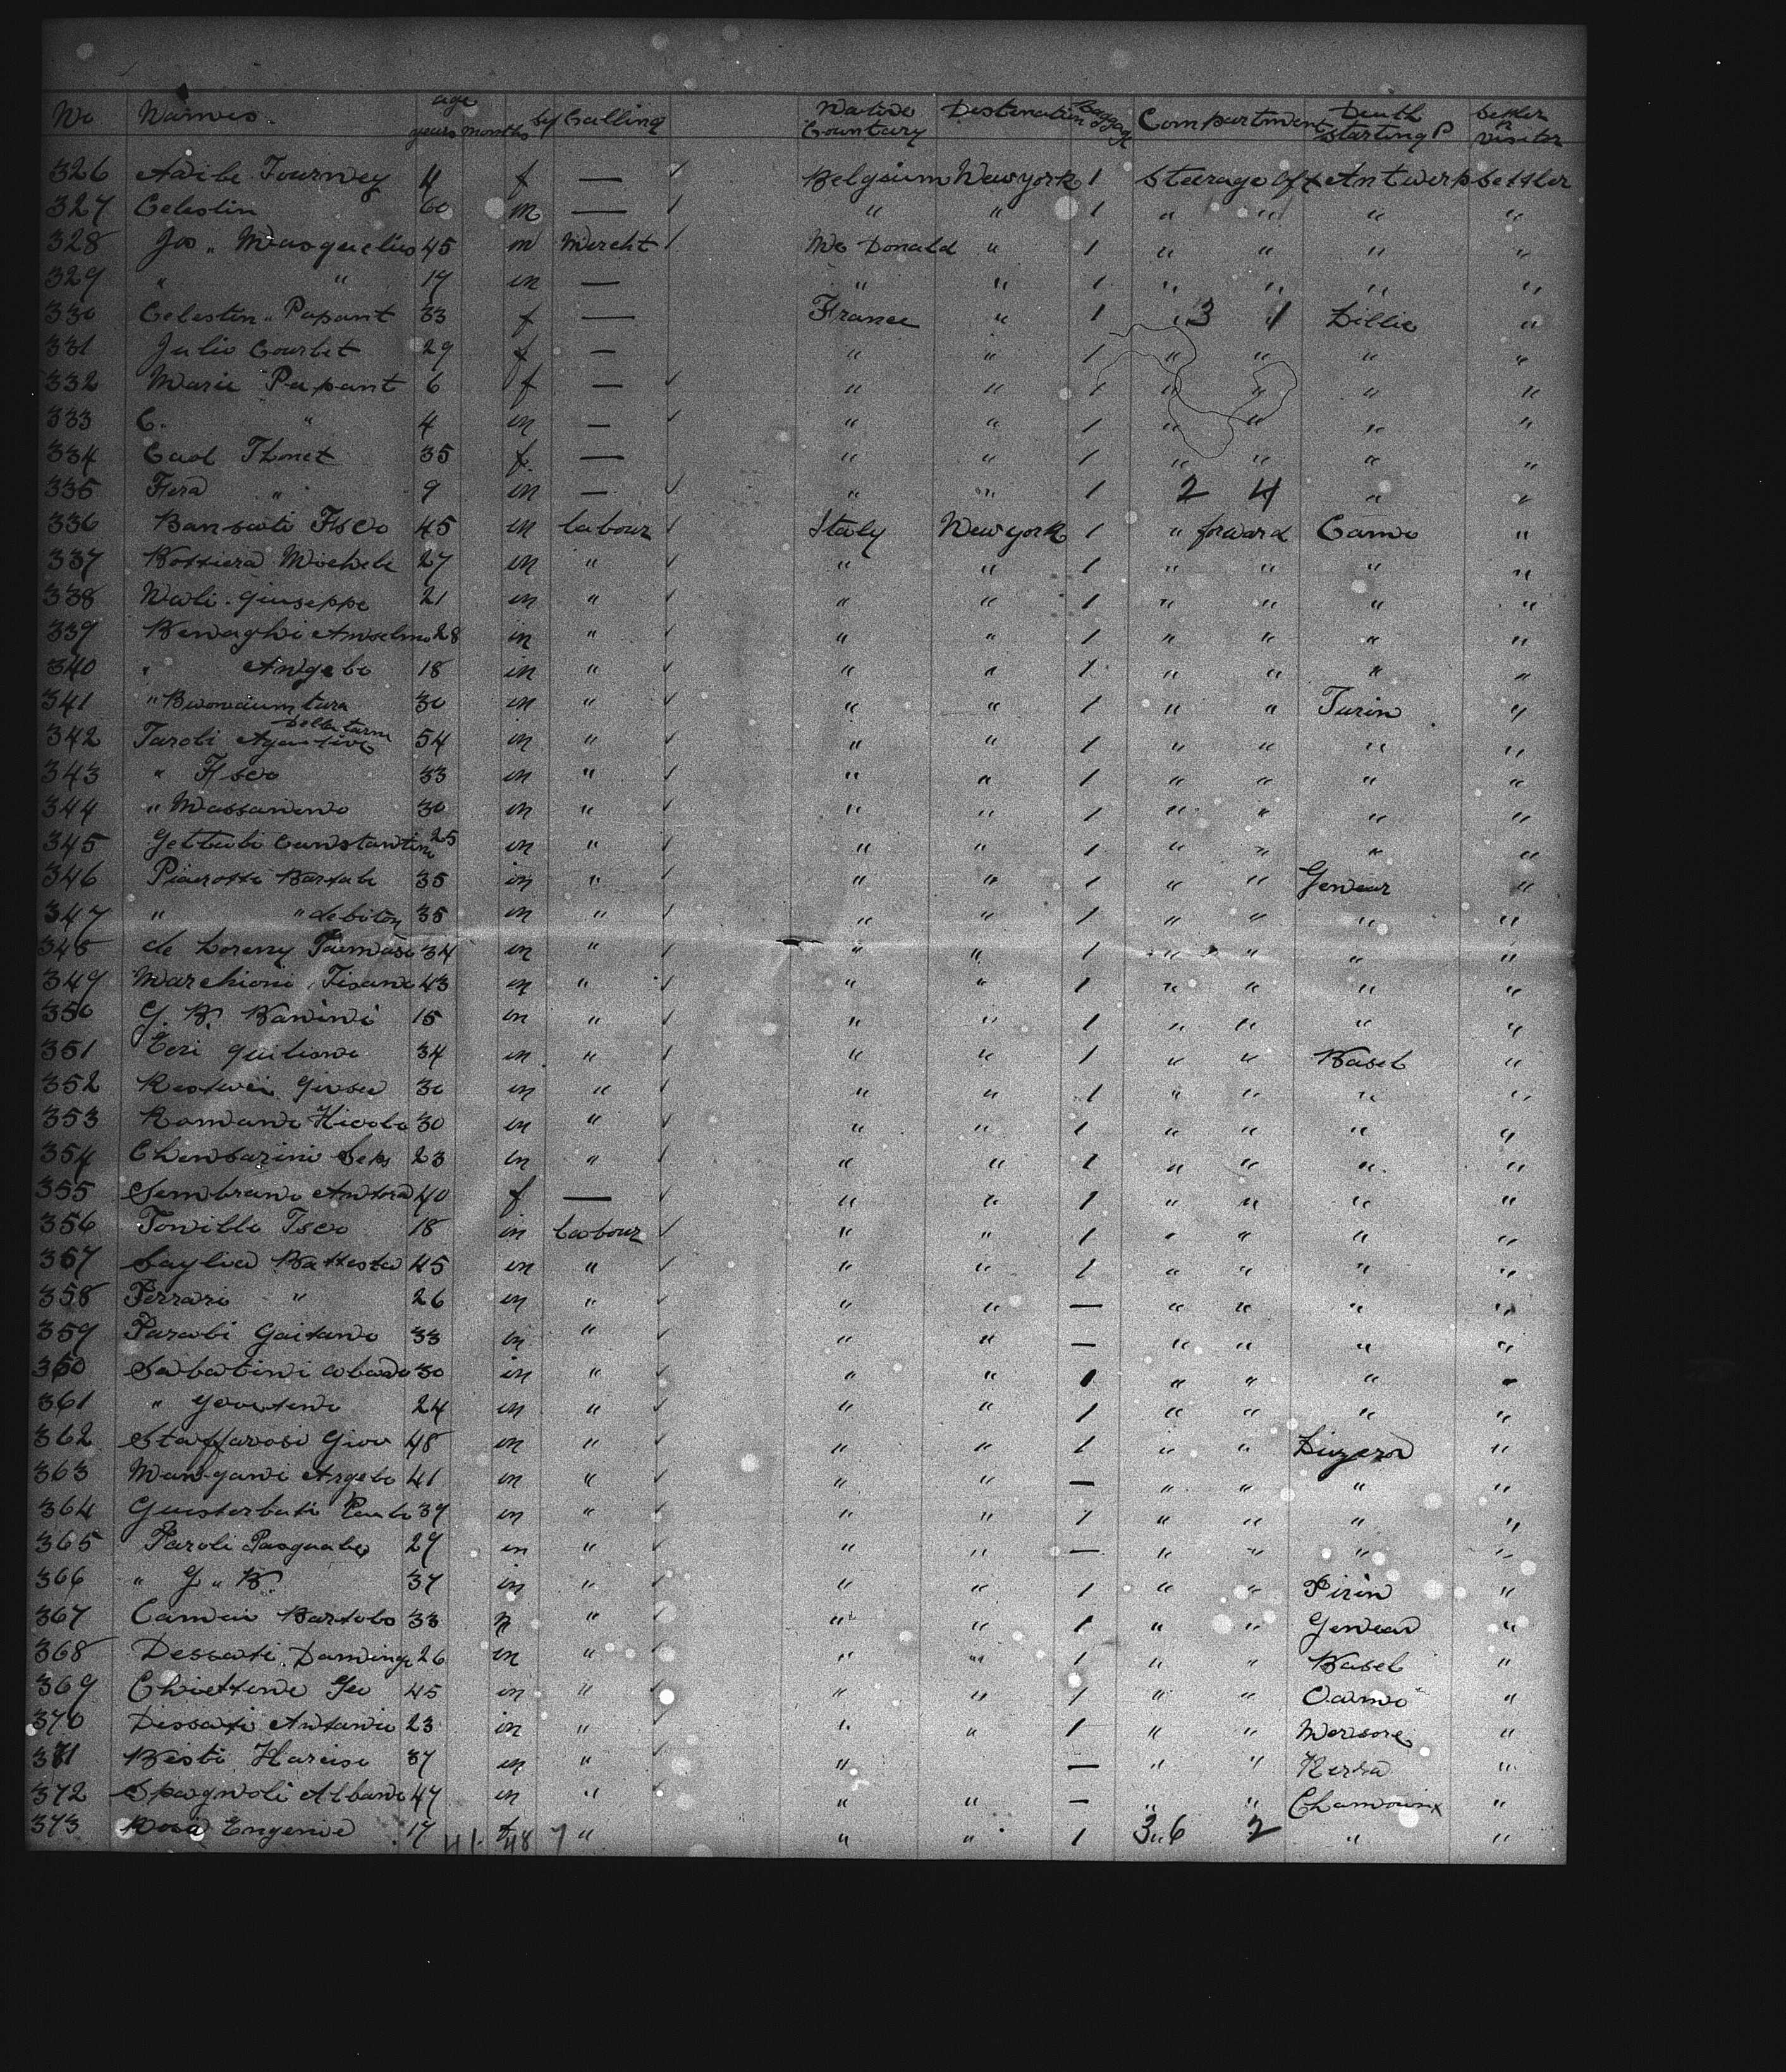 No Names age years months sex Calling Native Country Destination Baggage Compartment Death Starting P Settler or Visitor
326 Adile Fourney 4 f — ✓ Belgium New york 1 Steerage aft Antwerp settler
327 Celestin 60 m — / " " 1 " " " "
328 Jos " Masquelius 45 m Mercht / Mc Donald " 1 " " " "
329 " " 19 m — " " 1 " " " "
330 Celestin " Papant 33 f — France " 1 " 3 1 Lillie "
331 Julio Courbet 29 f — " " 1 " " " "
332 Marie Papant 6 f — ✓ " " 1 " " " "
333 C. " 4 m — ✓ " " 1 " " " "
334 Carol Thonet 35 f. — " " 1 " " " "
335 Flera " 9 m — ✓ " " 1 2 4 " "
336 Bansati Fsco 45 m labour ✓ Italy New york 1 " forward Camo "
337 Bossiera Michele 27 m " ✓ " " 1 " " " "
338 Wali Giuseppe 21 m " ✓ " " 1 " " " "
339 Benaghi Anselmo 28 m " ✓ " " 1 " " " "
340 " Angelo 18 m " ✓ " " 1 " " " "
341 " Buonauntura 30 m " ✓ " " 1 " " Turin "
342 Taroli Agustivo Dellatarm 54 m " ✓ " " 1 " " " "
343 " Fsco 33 m " ✓ " " 1 " " " "
344 " Massanino 30 m " ✓ " " 1 " " " "
345 Gettuli Cunstantino 25 m " ✓ " " 1 " " " "
346 Piarotti Bartale 35 m " ✓ " " 1 " " Genear "
347 " " debiton 35 m " / " " 1 " " " "
348 de Loreny Tamaso 34 m " / " " 1 " " " "
349 Marchioni Tisano 43 m " ✓ " " 1 " " " "
350 G. B. Banini 15 m " ✓ " " 1 " " " "
351 Ceri Guiliano 34 m " / " " 1 " " Basel "
352 Restwei Giosue 30 m " ✓ " " 1 " " " "
353 Romano Hicolo 30 m " ✓ " " 1 " " " "
354 Chensarini Seks 23 m " ✓ " " 1 " " " "
355 Sembrano Antora 40 f — ✓ " " 1 " " " "
356 Tonillo Fsco 18 m labour ✓ " " 1 " " " "
357 Saylia Battesta 45 m " ✓ " " 1 " " " "
358 Ferrari " 26 m " ✓ " " — " " " "
359 Parabi Gaitano 33 m " ✓ " " — " " " "
360 Sabatini abado 30 m " ✓ " " 1 " " " "
361 " Govetino 24 m " ✓ " " 1 " " " "
362 Staffarosi Giov 48 m " ✓ " " 1 " " Luzern "
363 Mangani Angelo 41 m " ✓ " " — " " " "
364 Guistorbati Paulo 39 m " ✓ " " 1 " " " "
365 Paroli Pasquale 29 m " ✓ " " — " " " "
366 " G " B. 37 m " ✓ " " 1 " " Pirin "
367 Camin Bartolo 33 m " ✓ " " 1 " " Genear "
368 Dessati Daminge 26 m " ✓ " " 1 " " Basel "
369 Chiettine Geo 45 m " ✓ " " 1 " " Camo "
370 Dissati Antanio 23 m " ✓ " " 1 " " "
371 Besti Harcise 37 m " ✓ " — " " "
372 Spagnoli Albano 47 m " ✓ " " — " " Chamounix "
373 Rosa Engenie 17 41. f 48 7 " " " 1 3 " 6 2 " "